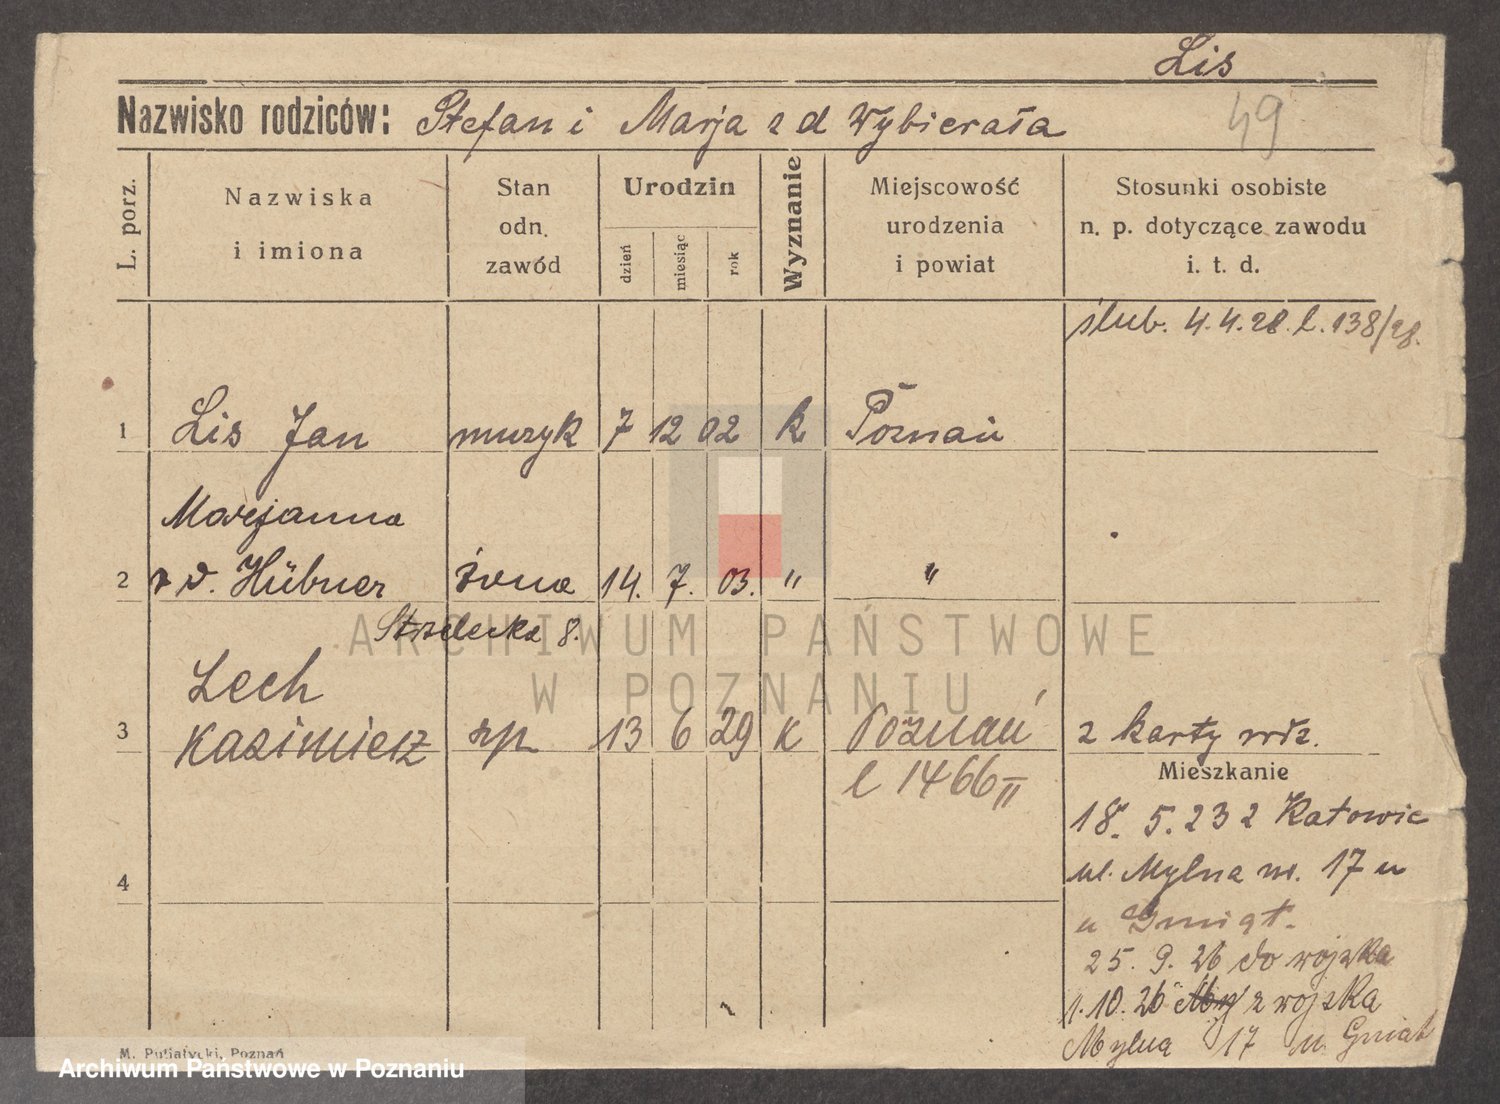 Lis
Nazwisko rodziców: Stefan i Marja z d Wybierała
49
L. porz.
Nazwiska
i imiona
Stan
odn.
zawód
Urodzin
dzień
miesiąc
rok
Wyznanie
Miejscowość
urodzenia
i powiat
Stosunki osobiste
n. p. dotyczące zawodu
i. t. d.
ślub. 4.4.28. l. 138/28.
1 Lis Jan muzyk 7 12 02 k Poznań
Marjanna
2 z d. Hübner żona 14. 7. 03. " "
Strzelecka 8.
Lech
3 Kazimierz sp 13 6 29 k Poznań z karty
l 1466 II
Mieszkanie
18. 5. 23 z Katowic
ul. Mylna m. 17 u
u Gmiąt.
4
25. 9. 26 do wojska
1. 10. 26 z wojska
Mylna 17 u Gmiat
M. Putiatycki, Poznań
ARCHIWUM PAŃSTWOWE
W POZNANIU
Archiwum Państwowe w Poznaniu